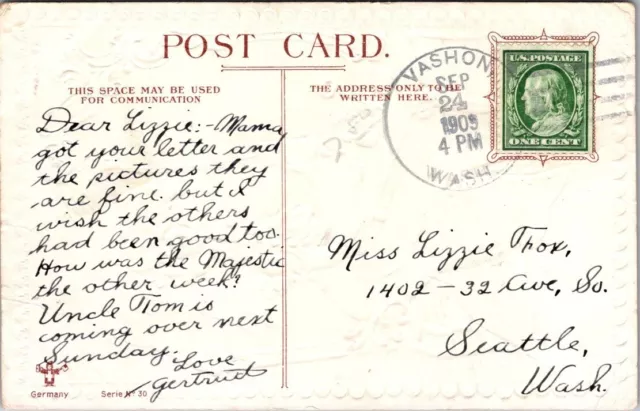 POST CARD.
THIS SPACE MAY BE USED
FOR COMMUNICATION
THE ADDRESS ONLY TO BE
WRITTEN HERE.
VASHON
SEP
24
1909
4 PM
WASH.
U.S. POSTAGE
ONE CENT
Dear Lizzie:- Mama
got your letter and
the pictures they
are fine. but I
wish the others
had been good too.
How was the Majestic
the other week?
Uncle Tom is
coming over next
Sunday.
Love
Gertrud
Miss Lizzie Fox,
1402-32 Ave, So.
Seattle,
Wash.
Germany
Serie No 30